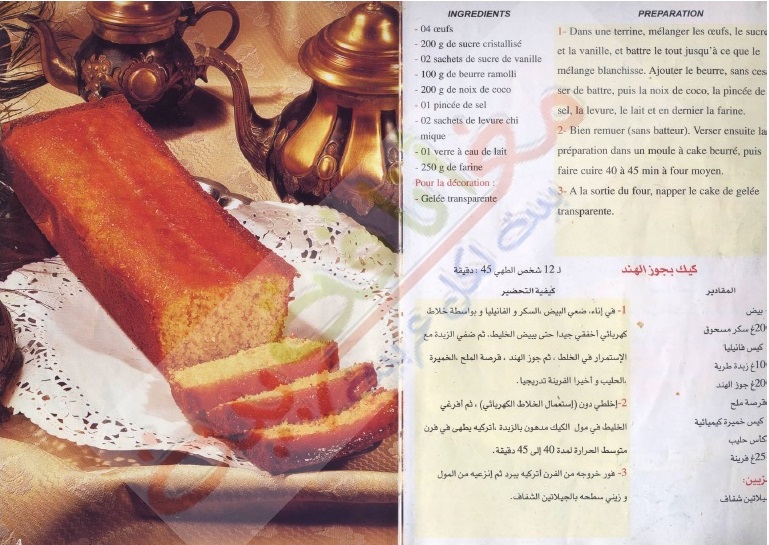 INGREDIENTS
- 04 œufs
- 200 g de sucre cristallisé
- 02 sachets de sucre de vanille
- 100 g de beurre ramolli
- 200 g de noix de coco
- 01 pincée de sel
- 02 sachets de levure chi
mique
- 01 verre à eau de lait
- 250 g de farine
Pour la décoration :
- Gelée transparente
PREPARATION
1- Dans une terrine, mélanger les œufs, le sucre
et la vanille, et battre le tout jusqu'à ce que le
mélange blanchisse. Ajouter le beurre, sans ces
ser de battre, puis la noix de coco, la pincée de
sel, la levure, le lait et en dernier la farine.
2- Bien remuer (sans batteur). Verser ensuite la
préparation dans un moule à cake beurré, puis
faire cuire 40 à 45 min à four moyen.
3- A la sortie du four, napper le cake de gelée
transparente.
كيك بجوز الهند
لـ 12 شخص الطهي 45 : دقيقة
المقادير
بيض
200غ سكر مسحوق
كيس فانيليا
100غ زبدة طرية
200غ جوز الهند
قرصة ملح
كيس خميرة كيميائية
كأس حليب
25غ فرينة
زيين:
جيلاتين شفاف
كيفية التحضير
1- في إناء، ضعي البيض ،السكر و الفانيليا و بواسطة خلاط
كهربائي أخفقي جيدا حتى يبيض الخليط. ثم ضفي الزبدة مع
الإستمرار في الخلط ، ثم جوز الهند ، قرصة الملح ،الخميرة
،الحليب و أخيرا الفرينة تدريجيا .
2-إخلطي دون (إستعمال الخلاط الكهربائي) ، ثم أفرغي
الخليط في مول الكيك مدهون بالزبدة ،أتركيه يطهى في فرن
متوسط الحرارة لمدة 40 إلى 45 دقيقة.
3- فور خروجه من الفرن أتركيه يبرد ثم إنزعيه من المول
و زيني سطحه بالجيلاتين الشفاف.
4